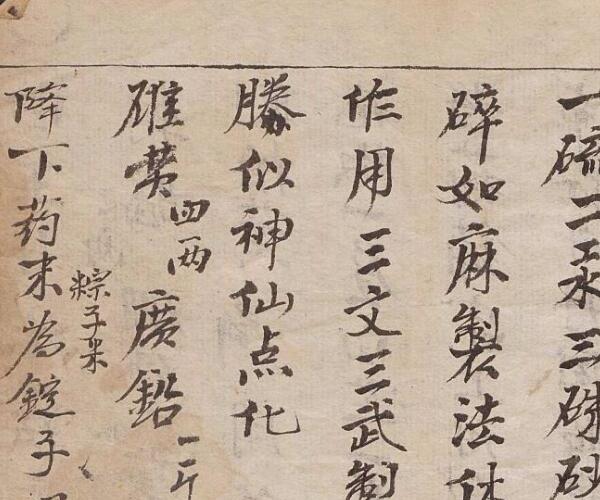 一硫二汞三硃砂
碎如麻製法
作用三文三武制
勝似神仙点化
碓黄四两廣鉛一斤
降下药末為錠子
粽子米